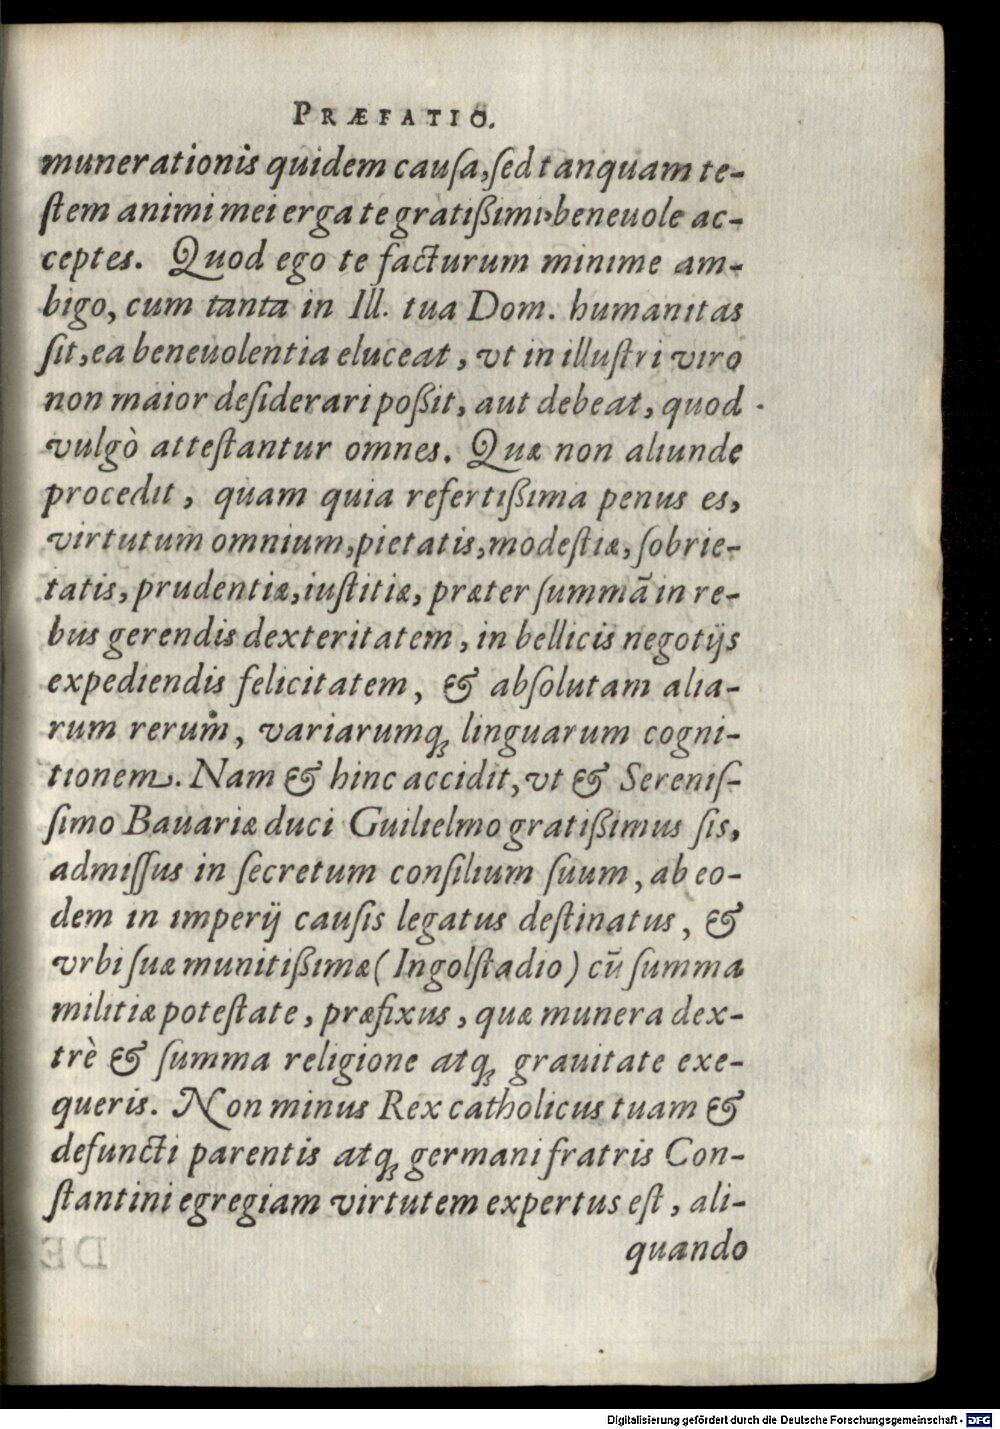 PRÆFATIO.
munerationis quidem causa, sed tanquam te-
stem animi mei erga te gratißimi, beneuole ac-
ceptes. Quod ego te facturum minime am-
bigo, cum tanta in Ill. tua Dom. humanitas
sit, ea beneuolentia eluceat, vt in illustri viro
non maior desiderari poßit, aut debeat, quod
vulgò attestantur omnes. Quæ non aliunde
procedit, quam quia refertißima penus es,
virtutum omnium, pietatis, modestiæ, sobrie-
tatis, prudentiæ, iustitiæ, præter summā in re-
bus gerendis dexteritatem, in bellicis negotijs
expediendis felicitatem, & absolutam alia-
rum rerum, variarumq; linguarum cogni-
tionem. Nam & hinc accidit, vt & Serenis-
simo Bauariæ duci Guilielmo gratißimus sis,
admissus in secretum consilium suum, ab eo-
dem in imperij causis legatus destinatus, &
vrbi suæ munitißimæ (Ingolstadio) cū summa
militiæ potestate, præfixus, quæ munera dex-
trè & summa religione atq; grauitate exe-
queris. Non minus Rex catholicus tuam &
defuncti parentis atq; germani fratris Con-
stantini egregiam virtutem expertus est, ali-
quando
Digitalisierung gefördert durch die Deutsche Forschungsgemeinschaft - DFG